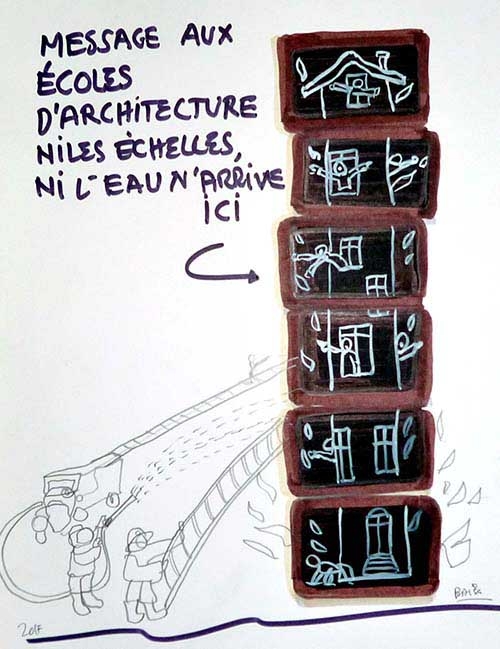 MESSAGE AUX
ÉCOLES
D'ARCHITECTURE
NI LES ÈCHELLES,
NI L'EAU N'ARRIVE
ICI
2017